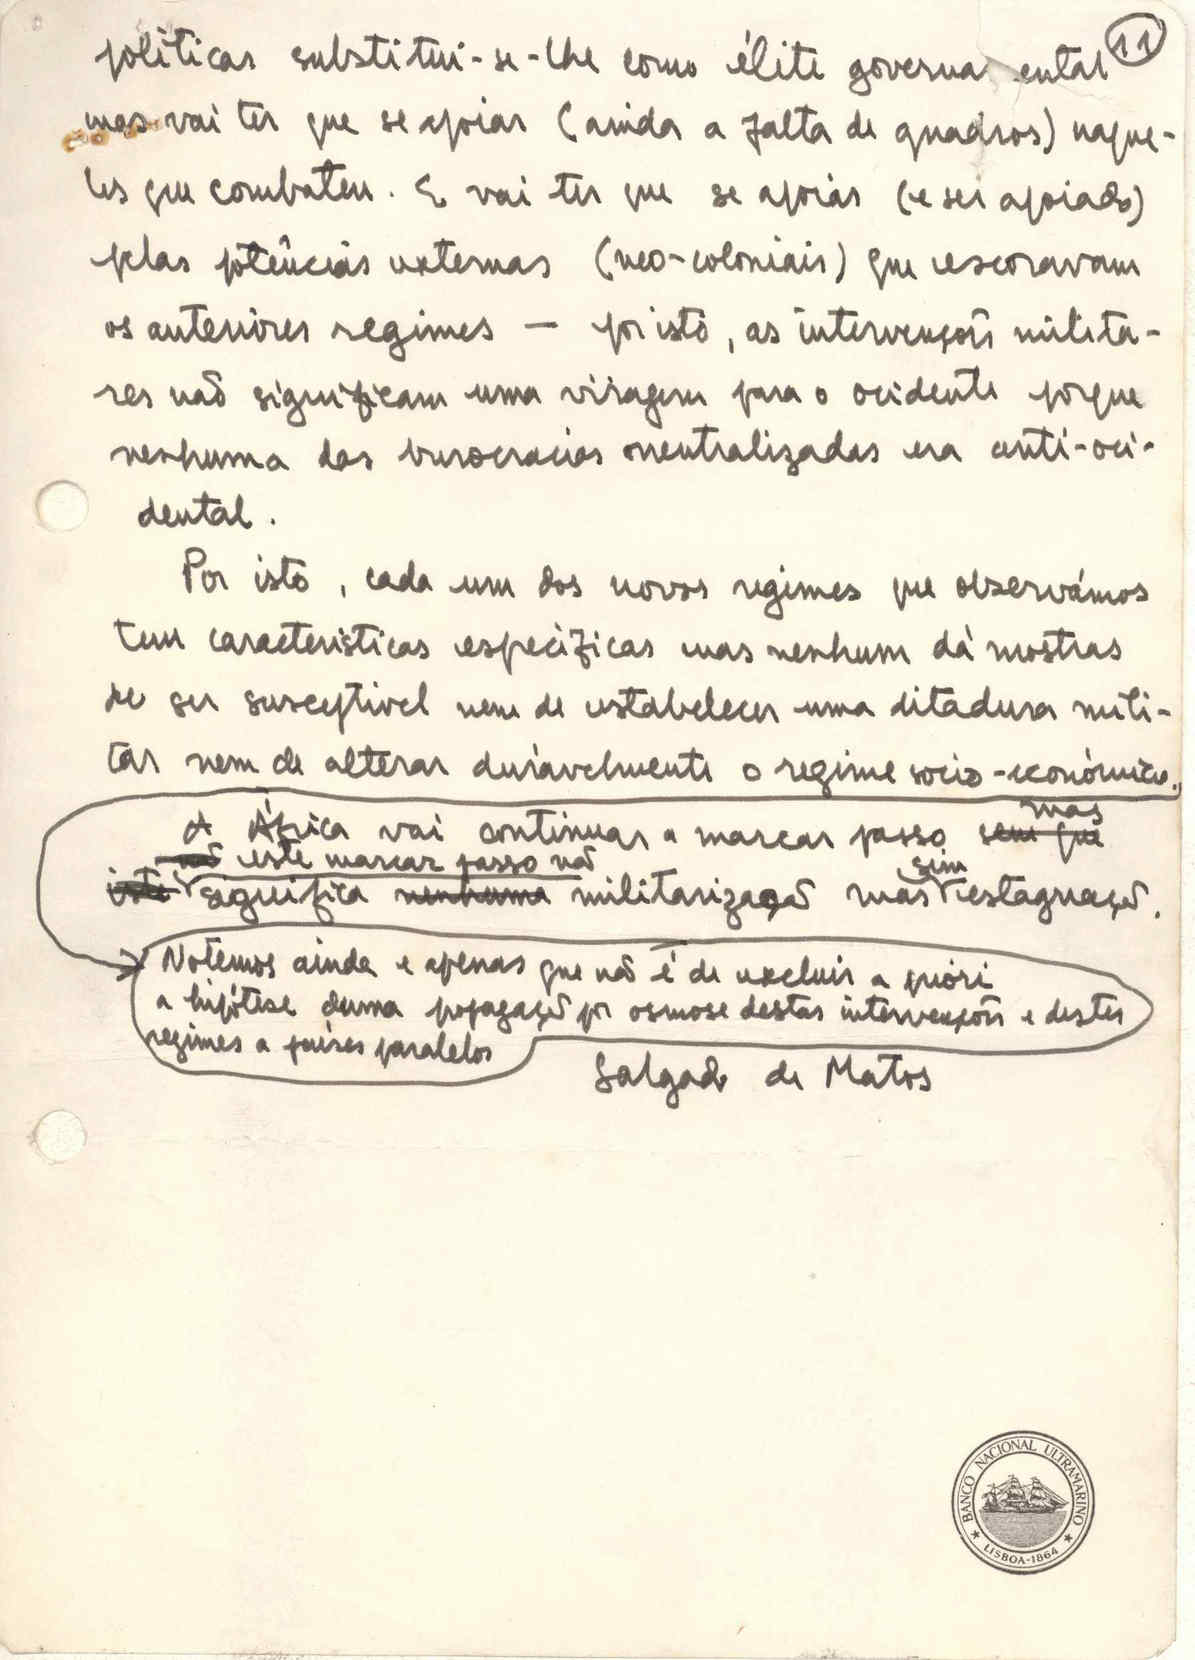 11
políticas substitui-se-lhe como élite governa ental
mas vai ter que se apoiar (ainda a falta de quadros) naque-
les que combateu. E vai ter que se apoiar (e ser apoiado)
pelas potências externas (neo-coloniais) que escoravam
os anteriores regimes — por isto, as intervenções milita-
res não significam uma viragem para o ocidente porque
nenhuma das burocracias neutralizadas era anti-oci-
dental.
Por isto, cada um dos novos regimes que observámos
tem características específicas mas nenhum dá mostras
de ser susceptivel nem de estabelecer uma ditadura mili-
tar nem de alterar duravelmente o regime socio-económico.
mas
A África vai continuar a marcar passo sem que
não este marcar passo não
isto significa nenhuma militarização mas sim estagnação.
Notemos ainda e apenas que não é de excluir a priori
a hipótese duma propagação por osmose destas intervenções e destes
regimes a países paralelos
Salgado de Matos
BANCO NACIONAL ULTRAMARINO
LISBOA-1864